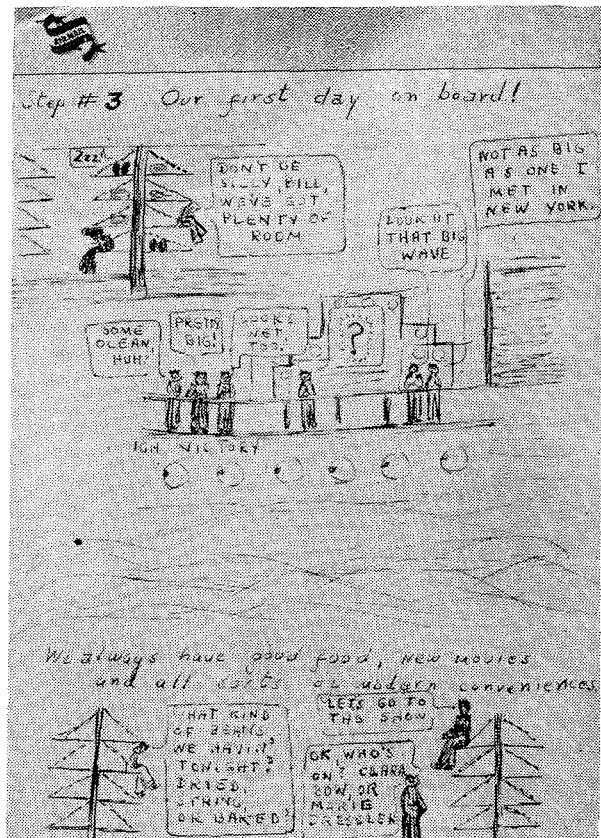 AIR MAIL
Step # 3 Our first day on board!
Zzz!
DON'T BE
SILLY, BILL,
WE'VE GOT
PLENTY OF
ROOM
NOT AS BIG
AS ONE I
MET IN
NEW YORK.
LOOK AT
THAT BIG
WAVE
SOME
OCEAN,
HUH?
PRETTY
BIG!
LOOKS
WET
TOO.
?
VICTORY
We always have good food, new movies
and all sorts of modern conveniences
WHAT KIND
OF BEANS
WE HAVIN'
TONIGHT?
DRIED,
STRING,
OR BAKED?
LETS GO TO
THE SHOW
OK, WHO'S
ON? CLARA
BOW OR
MARIE
DRESSLER